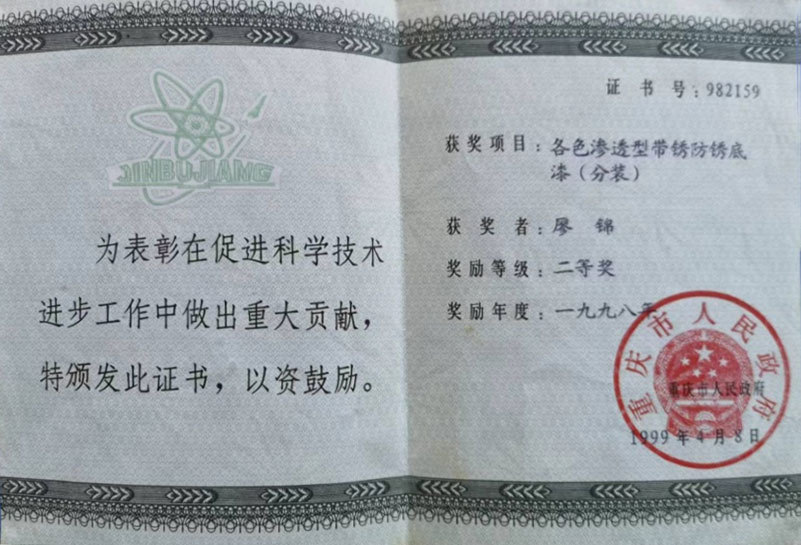 JINBUJIANG
为表彰在促进科学技术
进步工作中做出重大贡献，
特颁发此证书，以资鼓励。
证书号：982159
获奖项目：各色渗透型带锈防锈底
漆（分装）
获奖者：廖锦
奖励等级：二等奖
奖励年度：一九九八年
重庆市人民政府
重庆市人民政府
1999年4月8日